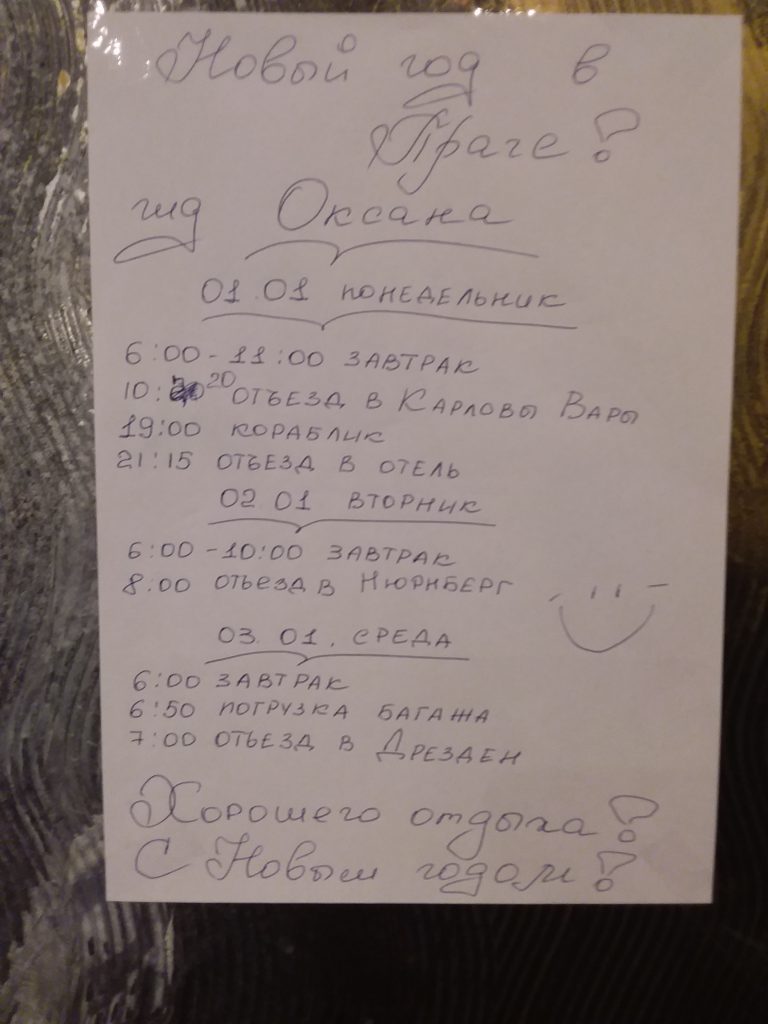 Новый год в
Праге!
гид Оксана
01.01 понедельник
6:00 - 11:00 завтрак
10:20 отъезд в Карловы Вары
19:00 кораблик
21:15 отъезд в отель
02 01 вторник
6:00 - 10:00 завтрак
8:00 отъезд в Нюрнберг
03.01. среда
6:00 завтрак
6:50 погрузка багажа
7:00 отъезд в Дрезден
Хорошего отдыха!
С Новым годом!